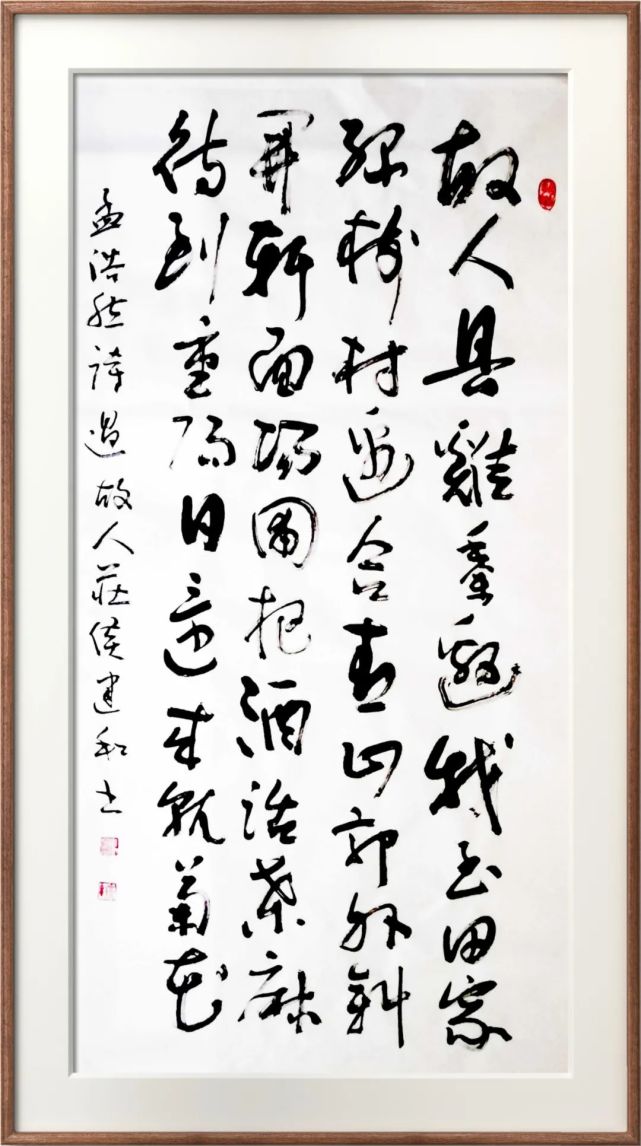 故人具雞黍邀我至田家
綠樹村邊合青山郭外斜
開軒面場圃把酒話桑麻
待到重陽日還來就菊花
孟浩然詩過故人莊侯建和书